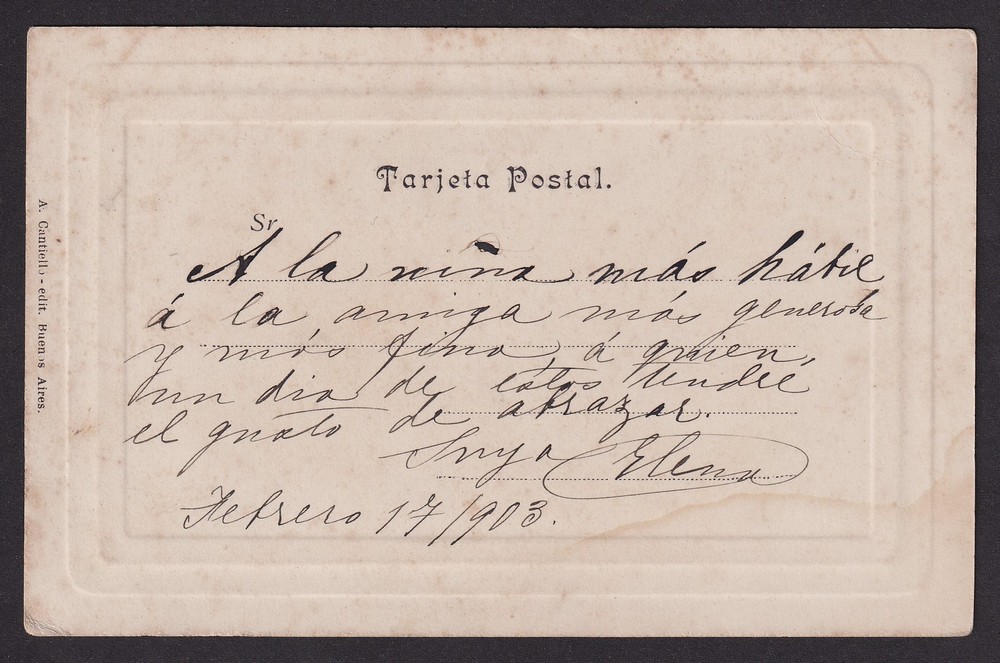 Tarjeta Postal.
Sr
A la niña más hábil
á la amiga más generosa
y más fina, á quien,
un dia de estos tendré
el gusto de abrazar.
Suya Elena
Febrero 17/903.
A. Cantiello - edit. Buenos Aires.